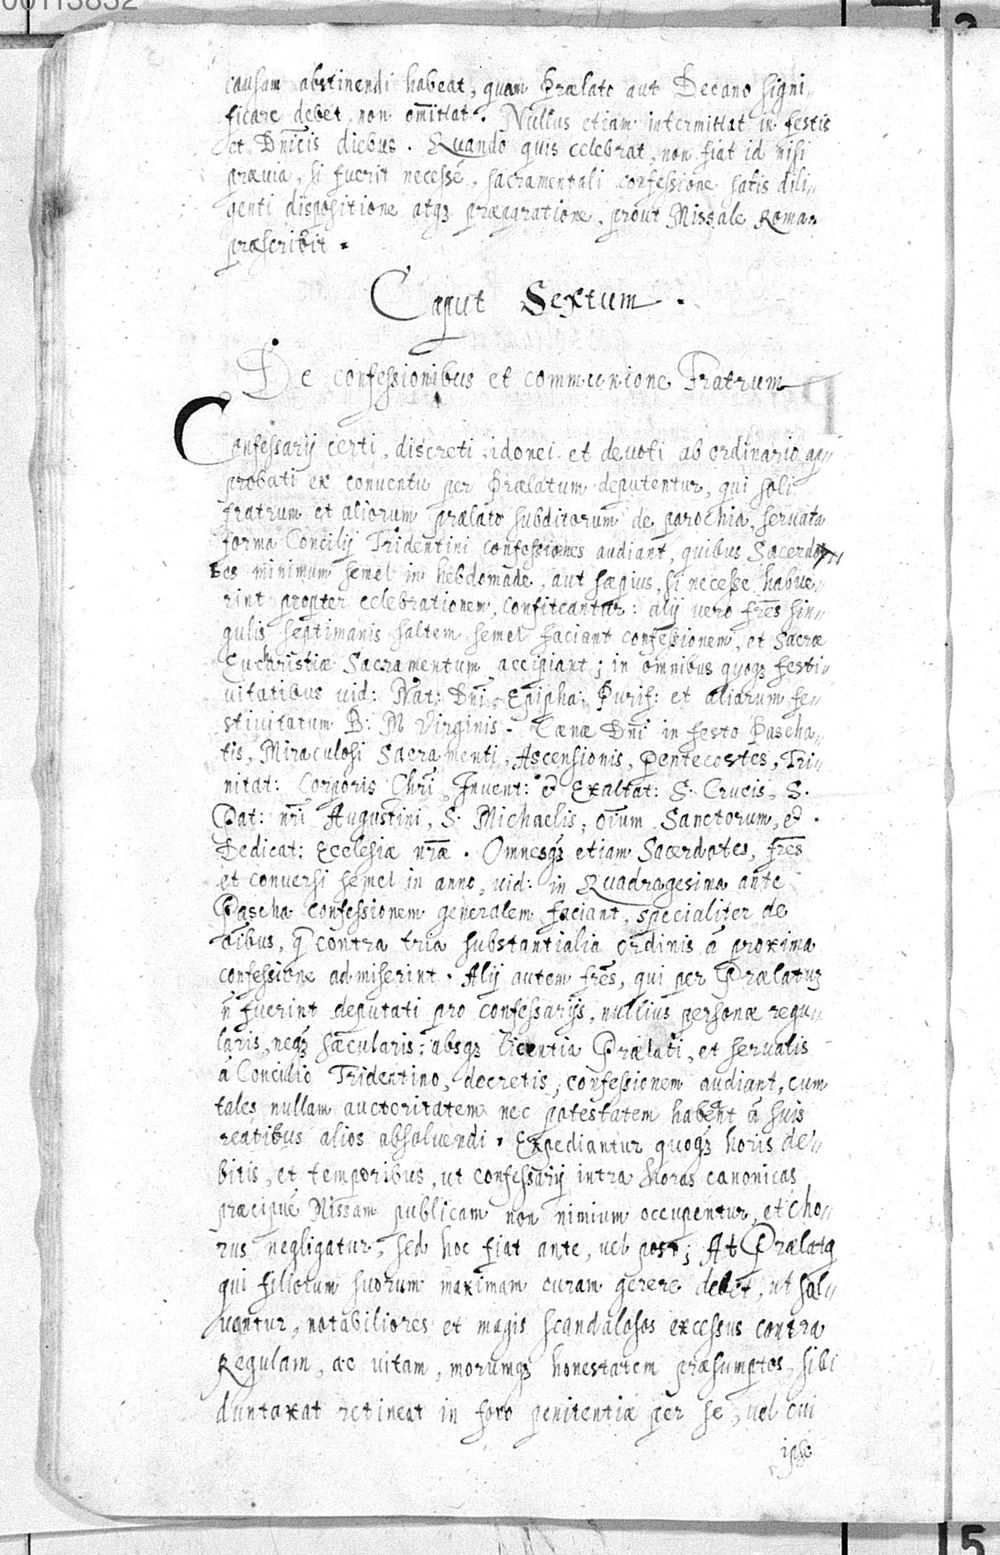 00113832
causam abstinendi habeat, quam Prælato aut Decano signi„
ficare debet, non om̄ittat. Nullus etiam intermittat in festis
et Dn̄icis diebus. Quando quis celebrat, non fiat id nisi
prævia, si fuerit necesse, sacramentali confessione satis dili„
genti dispositione atqȝ præparatione, prout Missale Roman
præscribit.
Caput Sextum.
De confessionibus et communione Fratrum
Confessarij certi, discreti idonei et devoti ab ordinario ap„
probati ex conventu per Prælatum deputentur, qui soli
fratrum et aliorum prælato subditorum de parochia, servata
forma Concilij Tridentini confessiones audiant, quibus Sacerdo„
tes minimum semel in hebdomade, aut sæpius, si necesse habue„
rint propter celebrationem, confiteantur: alij vero fr̄es sin„
gulis septimanis saltem semel faciant confessionem, et Sacræ
Eucharistiæ Sacramentum accipiant; in omnibus quoqȝ festi„
vitatibus vid: Nat: Dni. Epipha: Purif: et aliarum fe„
stivitatum B: M Virginis. Cænæ Dn̄i in festo Pascha„
tis, Miraculosi Sacramenti, Ascensionis, Pentecostes, Tri„
nitat: Corporis Chr̄i, Invent: & Exaltat: S. Crucis, S.
Pat: nr̄i Augustini, S. Michaelis, oīum Sanctorum, &.
Dedicat: Ecclesiæ nr̄æ. Omnesqȝ etiam Sacerdotes, fr̄es
et conversi semel in anno, vid: in Quadragesima ante
Pascha confessionem generalem faciant, specialiter de
oībus, q̄ contra tria substantialia ordinis á proxima
confessione admiserint. Alij autem fr̄es, qui per Prælatuȝ
n̄ fuerint deputati pro confessarijs, nullius personæ regu„
laris, neqȝ sæcularis: absqȝ licentia Prælati, et servatis
á Concilio Tridentino, decretis, confessionem audiant, cum
tales nullam auctoritatem nec potestatem habent á suis
reatibus alios absolvendi. Expediantur quoqȝ horis de„
bitis, et temporibus, ut confessarij intra horas canonicas
præcipué Missam publicam non nimium occupentur, et cho„
rus negligatur, sed hoc fiat ante, vel post; At Prælatq
qui filiorum suorum maximam curam gerere debet, ut sal„
ventur, notabiliores et magis scandalosos excessus contra
Regulam, ac vitam, morumqȝ honestatem præsumptos, sibi
duntaxat retineat in foro penitentiæ per se, vel cui
ipse